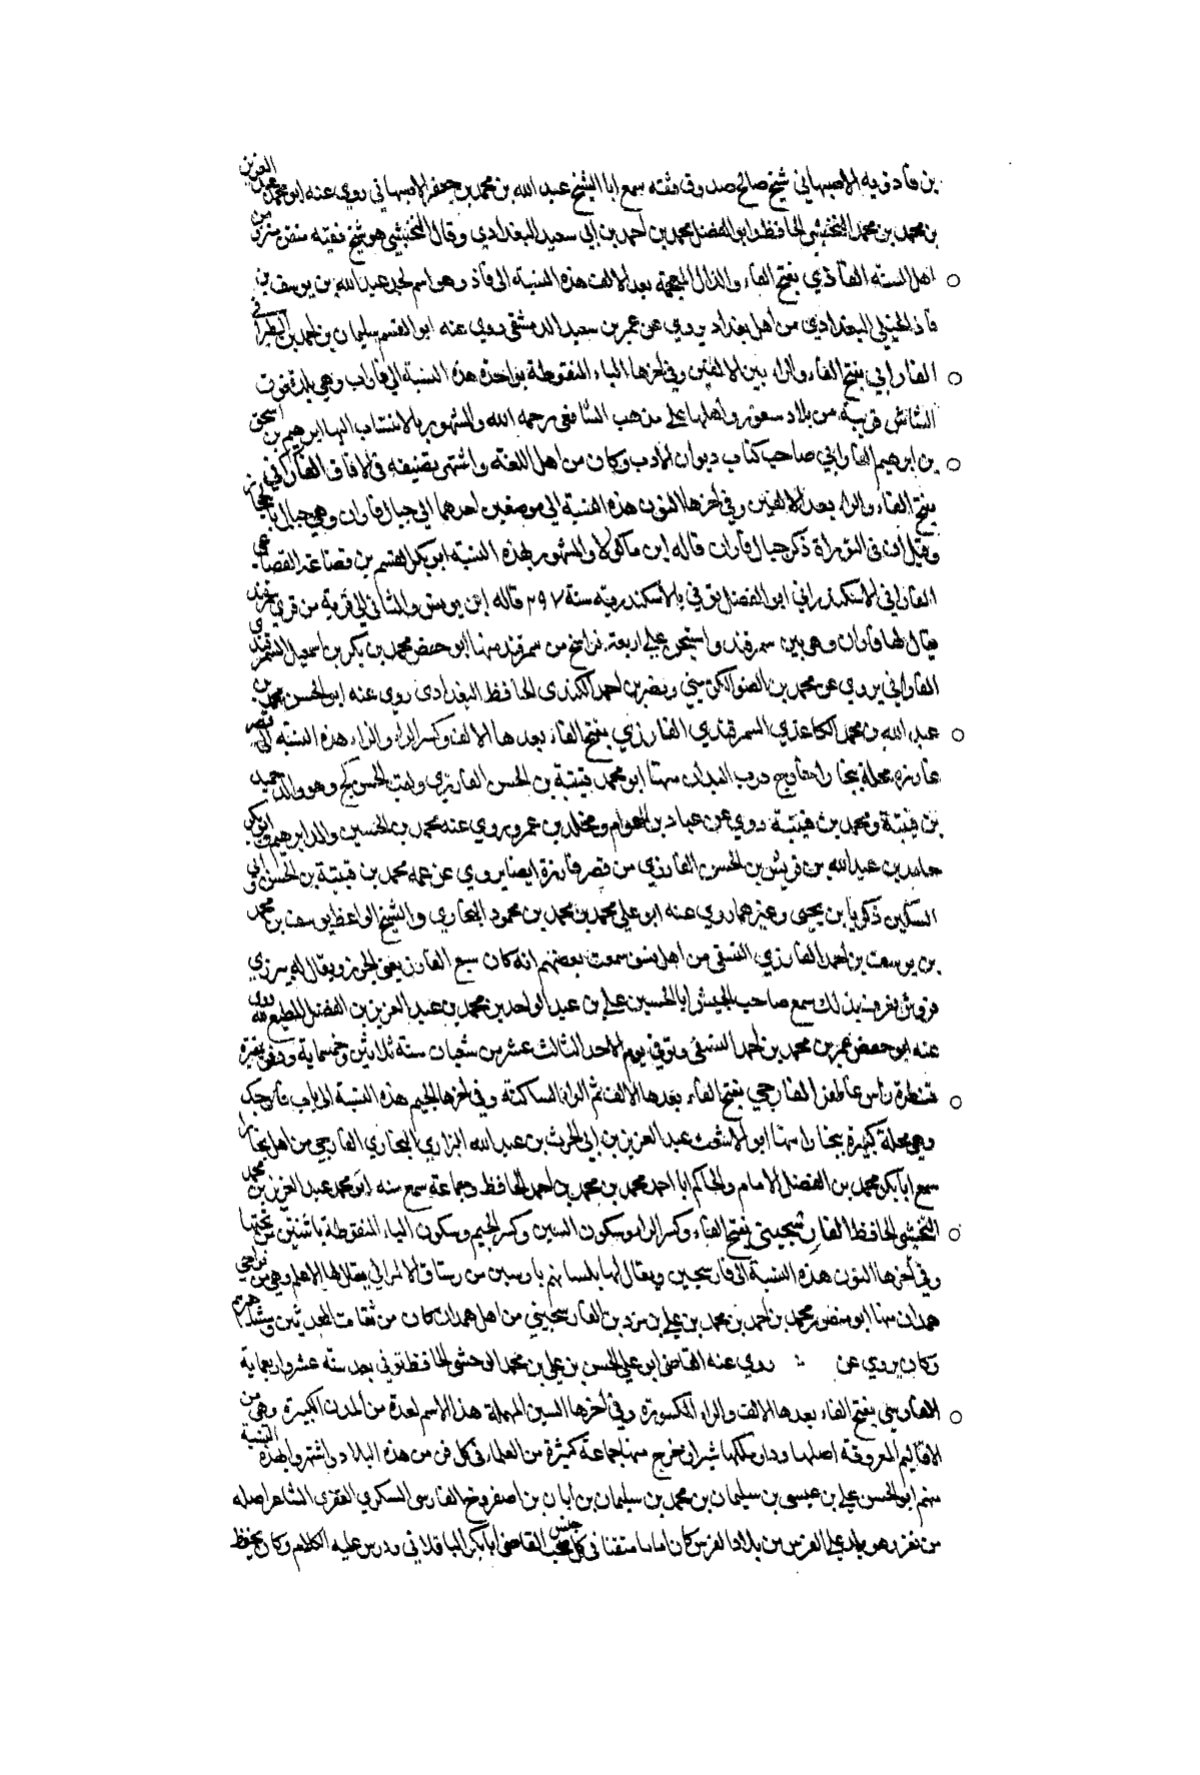 بن فاذويه الاصبهاني شيخ صالح صدوق ثقته سمع ابا الشيخ عبد الله بن محمد بن جعفر الاصبهاني روي عنه ابو محمد عبد العزيز
بن محمد بن محمد النخشبي الحافظ وابو الفضل محمد بن احمد بن ابي سعيد البغدادي وقال النخشبي هو شيخ ثقته من
اهل السنه الفاذي بفتح الفاء والذال المعجمة بعد الالف هذه النسبة الى فاذ وهو اسم لجد عبد الله بن يوسف بن
فاذ الختلي البغدادي من اهل بغداد يروي عن عمر بن سعيد الدمشقي روي عنه ابو القسم سليمان بن احمد بن الطبراني
الفارابي بفتح الفاء والراء بين الالفين وفي اخرها الباء المنقوطة بواحدة هذه النسبة الى فاراب وهي بلدة فوق
الشاش قريبة من بلاد سعون واهلها على مذهب الشافعي رحمه الله والمشهور بالانتساب اليها ابرهيم بن اسحق
بن ابرهيم الفارابي صاحب كتاب ديوان الادب وكان من اهل اللغة واشتهر تصنيفه في الافاق الفاراني
بفتح الفاء والراء بعد الالفين وفي اخرها النون هذه النسبة الى موضعين احدهما الى جبال فاران وهي جبال بالحجاز
وقيل ان في التوراة ذكر جبال فاران قاله ابن ماكولا والمشهور بهذه النسبة ابو بكر القسم بن قضاعة القضاعي
الفاراني الاسكندراني ابو الفضل توفي بالاسكندرية سنة ٢٩٧ قاله ابن يونس والثاني الى قرية من قري سمرقند
يقال لها فاران وهي بين سمرقند واستيخن على اربعة فراسخ من سمرقند منها ابو حفص محمد بن بكر بن اسمعيل السمرقندي
الفاراني يروي عن محمد بن الضو الكرميني ونصر بن احمد الكندى الحافظ البغدادى روي عنه ابو الحسن محمد بن
عبد الله بن محمد الكاغذي السمرقندي الفارزي بفتح الفاء بعدها الالف وكسر الراء والزاء هذه النسبة الى قصر
فارزه محلة ببخارا خارج درب الميدان منها ابو محمد قتيبة بن الحسن الفارزي ولقب الحسن كج وهو والد حميد
بن قتيبة ومحمد بن قتيبة روي عن عباد بن العوام ومخلد بن عمرو روي عنه محمد بن الحسين والد ابرهيم وابو بكر
حامد بن عبد الله بن قريش بن الحسن الفارزي من قصر فارزة ايضا يروي عن عمه محمد بن قتيبة بن الحسن وابي
السكين ذكريا بن يحيى وغيرهما روي عنه ابو علي محمد بن محمد بن محمود البخاري والشيخ الواعظ يوسف بن محمد
بن يوسف بن احمد الفارزي النسفي من اهل نسف سمعت بعضهم انه كان سبع الفارز يعني الجوز ويقال له
فروش يعرف بذلك سمع صاحب الجيش ابا الحسين علي بن عبد الواحد بن محمد بن عبد العزيز بن الفضل المطيع روي
عنه ابو حفص عمر بن محمد بن احمد النسفي وتوفي يوم الاحد الثالث عشر من شعبان سنة ثلاثين وخمسماية ودفن بمقبرة
قنطرة راس الفارجي بفتح الفاء بعدها الالف ثم الراء الساكنة وفي اخرها الجيم هذه النسبة الى باب فارجك
وهي محلة كبيرة ببخارا منها ابو الاشعث عبد العزيز بن ابي الحرث بن عبد الله البزاري البخاري الفارجي من اهل بخارا
سمع ابا بكر محمد بن الفضل الامام والحاكم ابا احمد محمد بن محمد بن احمد الحافظ وجماعة سمع منه ابو محمد عبد العزيز بن محمد
النخشبي الحافظ الفارسجيني بفتح الفاء وكسر الراء وسكون السين وكسر الجيم وسكون الياء المنقوطة باثنتين من تحتها
وفي اخرها النون هذه النسبة الى فارسجين ويقال لها بلسانهم بارسين من رستاق الالمر الي يقال لها الاهلم وهي من نواحي
همدان منها ابو منصور محمد بن احمد بن محمد بن علي بن مزدين الفارسجيني من اهل همدان كان من ثقات المحدثين ومشاهيرهم
وكان يروي عن : روي عنه القاضي ابو علي الحسن بن علي بن محمد الوحشي الحافظ توفي بعد سنة عشر واربعماية
الفارسي بفتح الفاء بعدها الالف والراء المكسورة وفي اخرها السين المهملة هذا الاسم لعدة من المدن الكبيرة وهي من
الاقاليم المعروفة اصلها ودار ملكها شيراز خرج منها جماعة كثيرة من العلماء في كل فن من هذه البلاد اشتهروا بهذه النسبة
منهم ابو الحسن علي بن عيسى بن سليمان بن محمد بن سليمان بن ابان بن اصفروخ الفارسى السكري النفري الشاعر اصله
من نفر وهو بلد على النرس من بلاد الفرس كان اماما متقنا في كل جنس صحب القاضي ابا بكر الباقلاني ودرس عليه الكلام وكان يحفظ